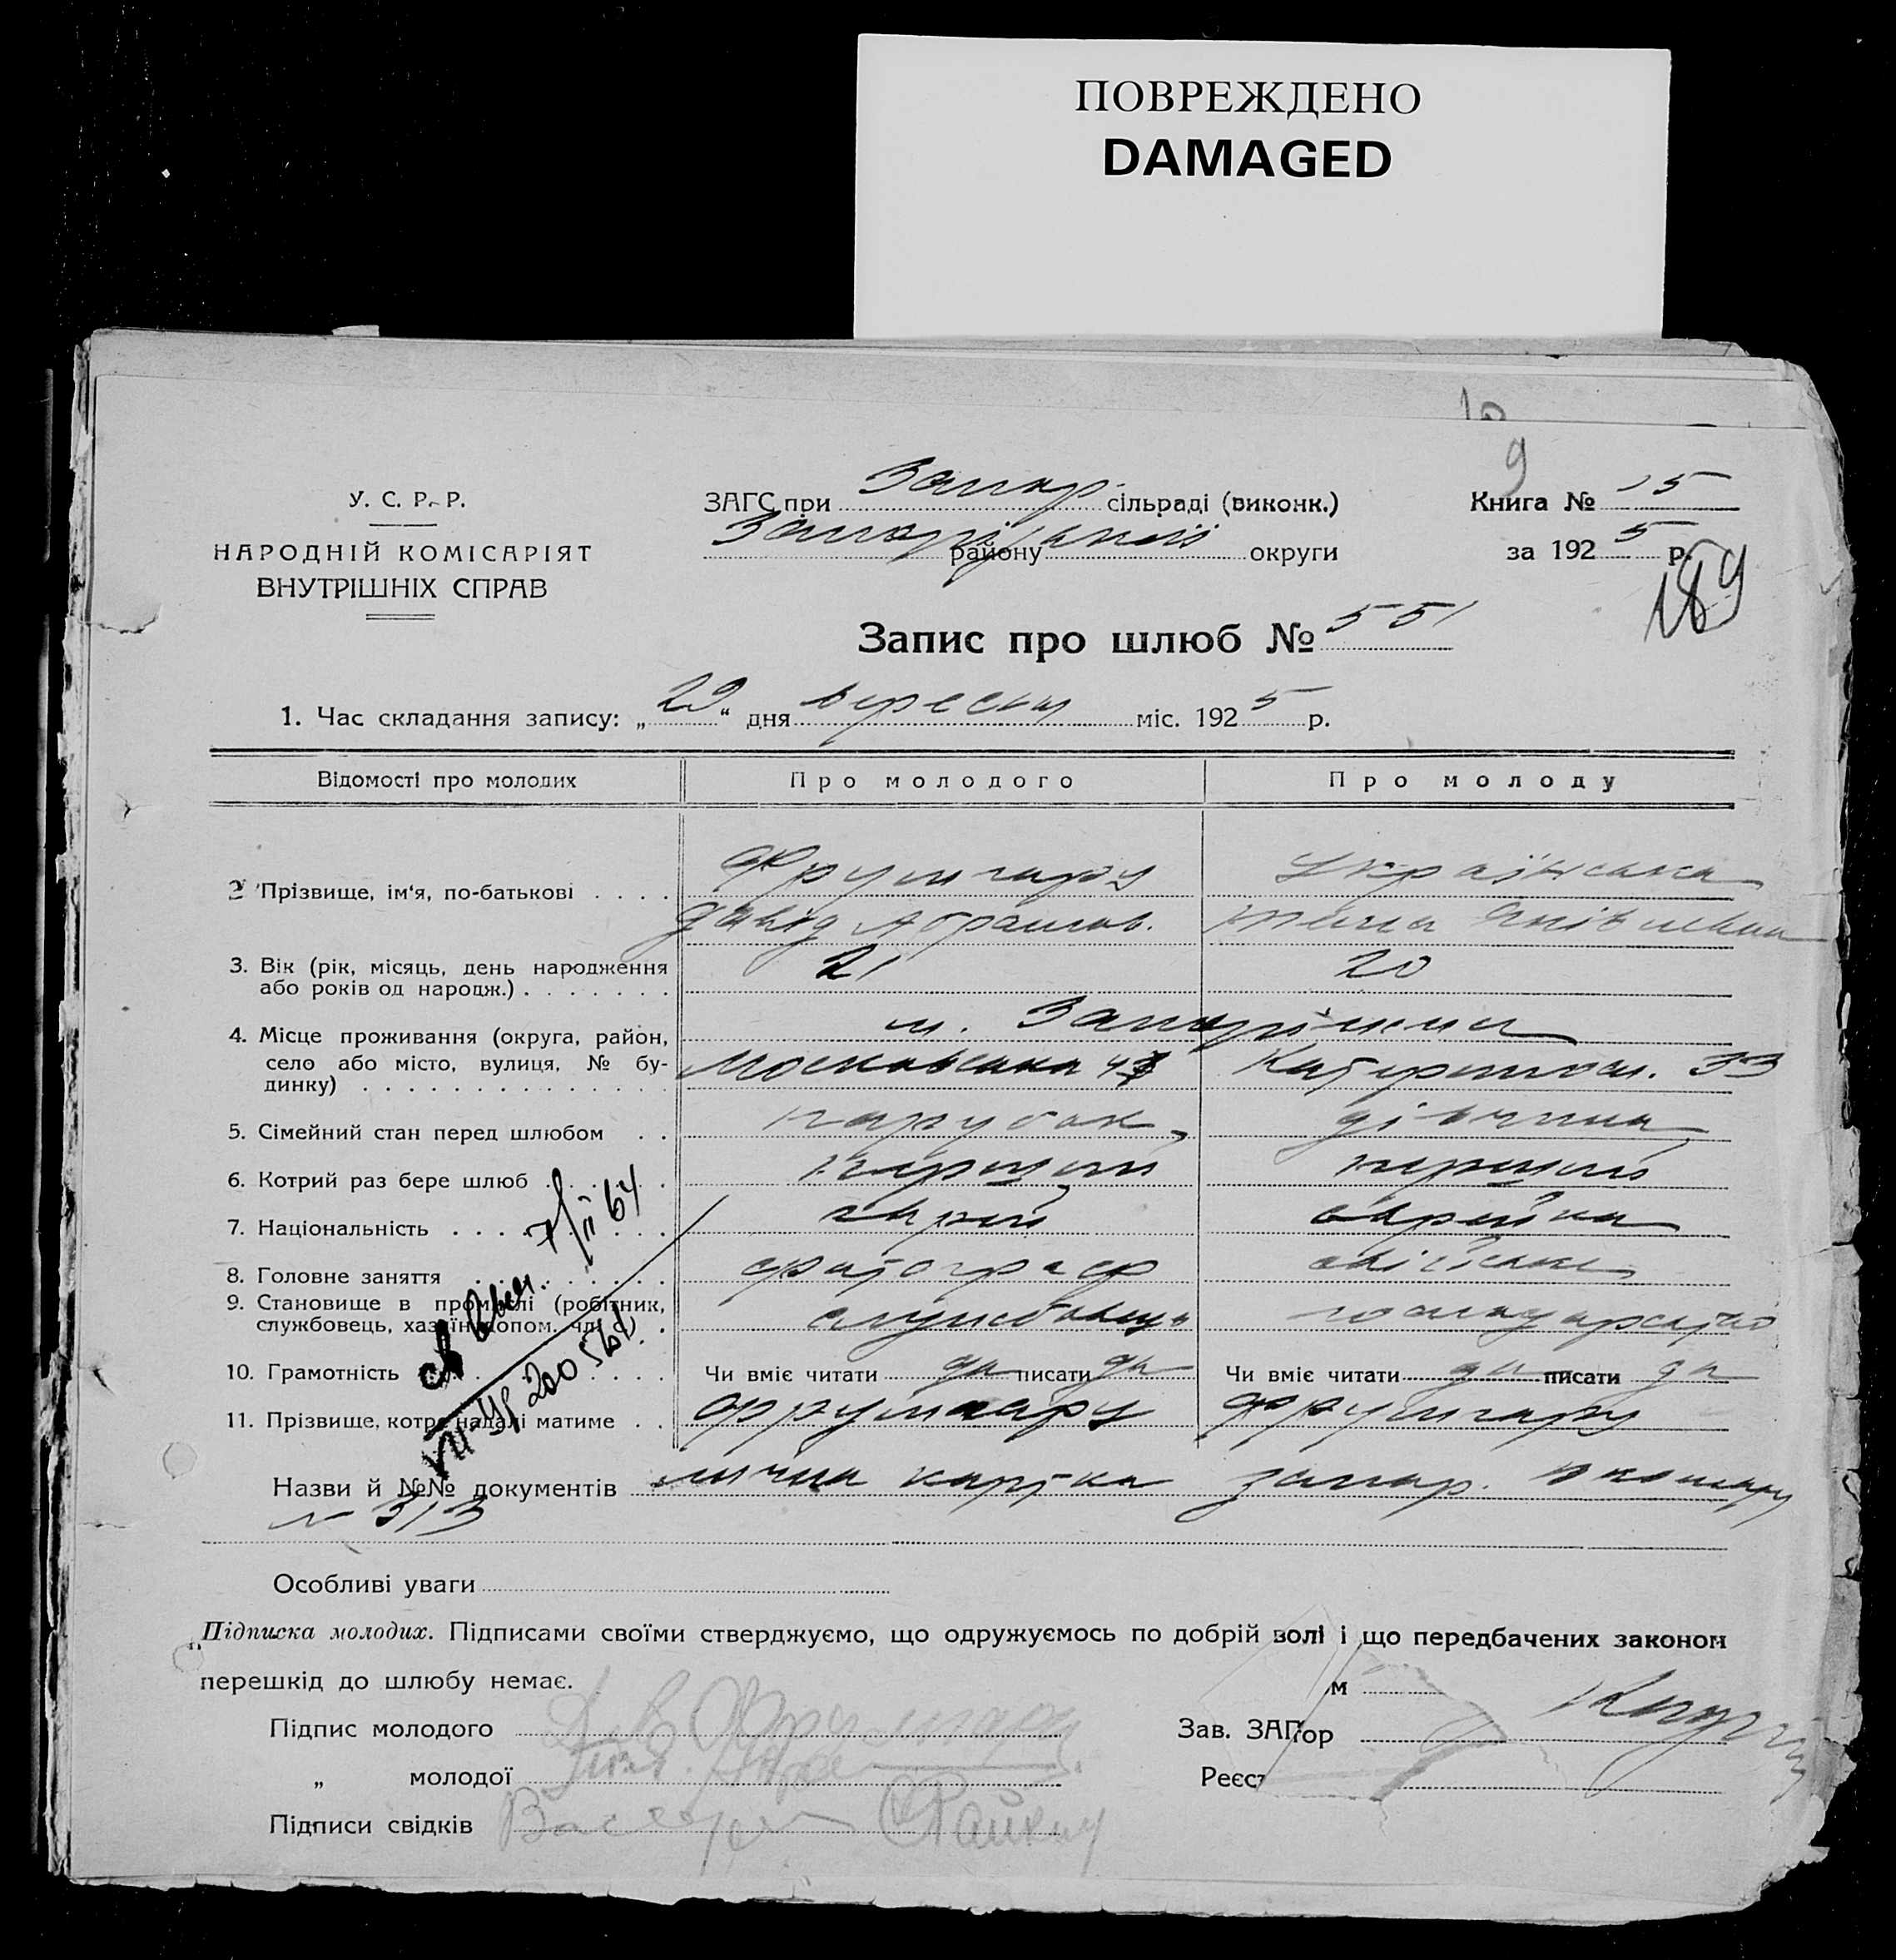 ПОВРЕЖДЕНО
DAMAGED
10
9
У. С. Р. Р.
НАРОДНІЙ КОМІСАРІЯТ
ВНУТРІШНІХ СПРАВ
ЗАГС при Запор. сільраді (виконк.)
Запорізької району округи
Книга № 15
за 1925 р.
189
Запис про шлюб № 551
1. Час складання запису: „29“ дня вересня міс. 1925 р.
Відомості про молодих Про молодого Про молоду
2 Прізвище, ім‘я, по-батькові . . . . Фрумгарц Українська
Давід Абрамов.
3. Вік (рік, місяць, день народження 21 20
або років од народж.) . . . . . . .
4. Місце проживання (округа, район, м. Запоріжжя
село або місто, вулиця, № бу- Московська Катеринос. 33
динку) . . . . . . . . . . . . . .
5. Сімейний стан перед шлюбом . . парубок дівчина
6. Котрий раз бере шлюб . . . . . . перший перший
7. Національність . . . . . . . . . єврей єврейка
8. Головне заняття . . . . . . . . . фотограф
9. Становище в промислі (робітник,
службовець, хазяїн, допом. чл. с.) . службовець господарство
10. Грамотність . . . . . . . . . . . Чи вміє читати да писати да Чи вміє читати да писати да
11. Прізвище, котре надалі матиме . . Фрумгарц Фрумгарц
7/II 64
Назви й №№ документів лична картка запор.
№ 313
Особливі уваги
„Підписка молодих. Підписами своїми стверджуємо, що одружуємось по добрій волі і що передбачених законом
перешкід до шлюбу немає.
м
Підпис молодого
Зав. ЗАГ
тор
„ молодої
Реєст
Підписи свідків